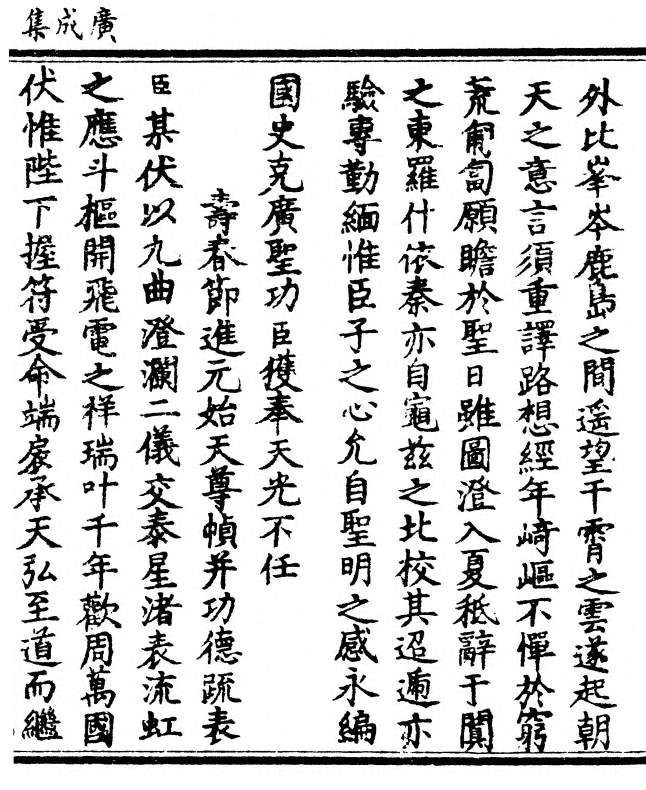 廣成集
外比峯岑鹿島之間遥望干霄之雲遂起朝
天之意言須重譯路想經年崎嶇不憚於窮
荒匍匐願瞻於聖日雖圖澄入夏秖辭于闐
之東羅什依秦亦自龜茲之北校其迢逓亦
驗專勤緬惟臣子之心允自聖明之感永編
國史克廣聖功臣獲奉天光不任
壽春節進元始天尊幀并功德疏表
臣某伏以九曲澄瀾二儀交泰星渚表流虹
之應斗樞開飛電之祥瑞叶千年歡周萬國
伏惟陛下握符受命端扆承天弘至道而繼